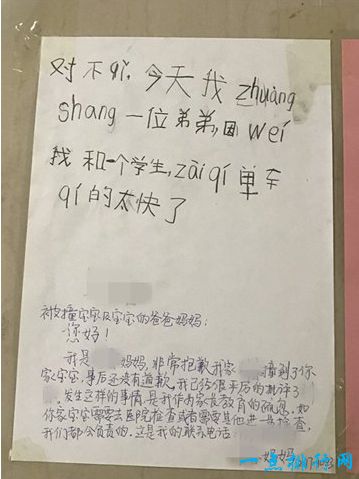 对不qǐ,今天我zhuàng
shang一位弟弟,因wèi
我和一个学生,zài qí单车
qí的太快了
被撞宝宝及宝宝的爸爸妈妈:
您好!
我是 妈妈,非常抱歉我家 撞到了你
家宝宝,事后还没有道歉。我已经很严厉的批评了
。发生这样的事情是我作为家长教育的疏忽,如
你家宝宝需要去医院检查或者需要其他进一步检查,
我们都会负责的。这是我的联系电话:
妈妈